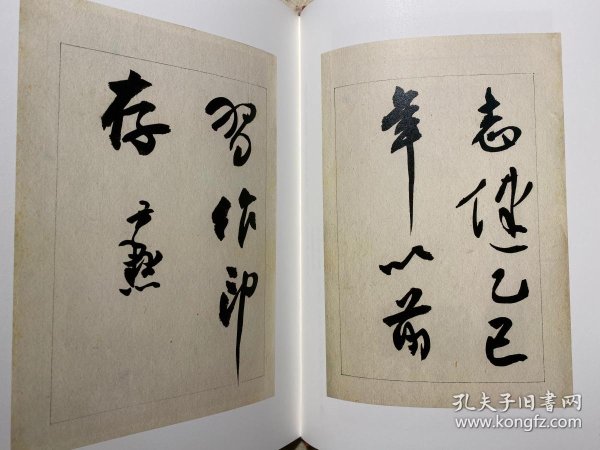 志健乙巳
年以前
習作印
存 尹默
孔夫子旧書网
www.kongfz.com